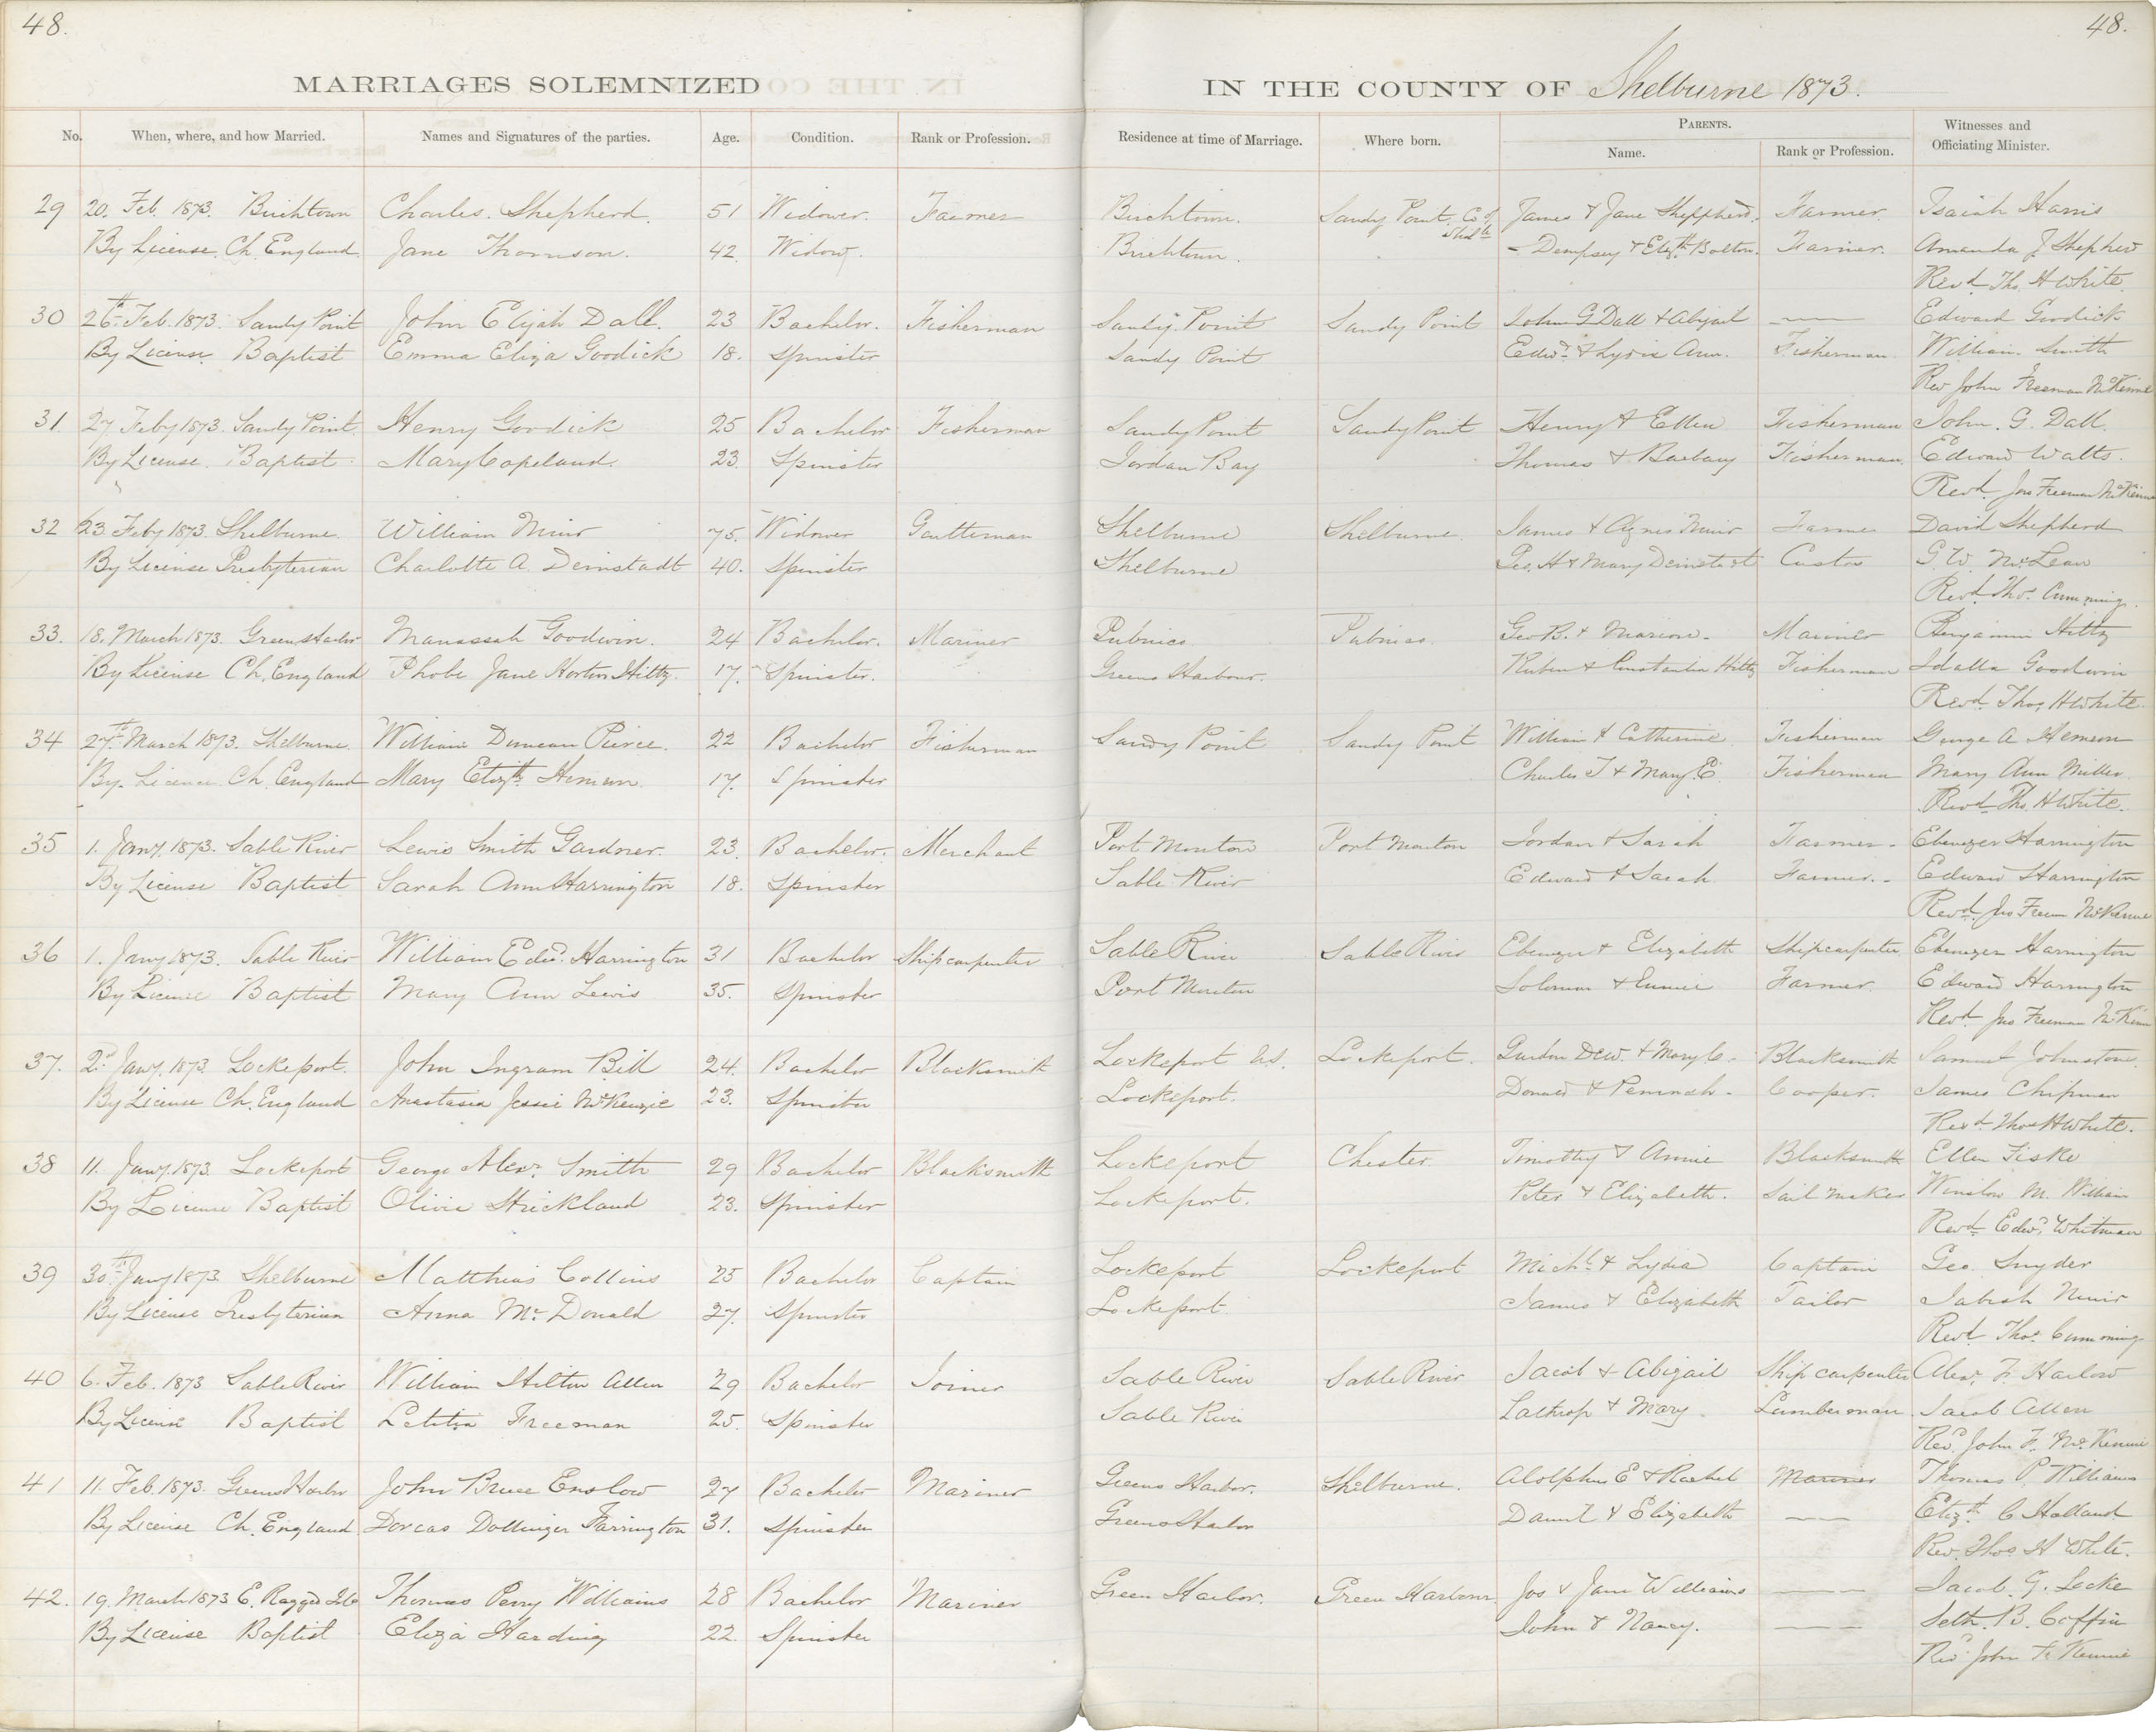 48.
48.
MARRIAGES SOLEMNIZED
IN THE COUNTY OF Shelburne 1873.
No. When, where, and how Married. Names and Signatures of the parties. Age. Condition. Rank or Profession. Residence at time of Marriage. Where born. PARENTS. Name. Rank or Profession. Witnesses and Officiating Minister.
29 20. Feb. 1873. Birchtown Charles. Shepherd. 51 Widower. Farmer Birchtown. Sandy Point Co of Shelbe James & Jane Sheppherd. Farmer. Isaiah Harris
By License. Ch. England. Jane Thomson. 42. Widow. Birchtown. Dempsey & Elizth Bolton. Farmer. Amanda J Shepherd
Revd Tho. H White
30 26th Feb. 1873. Sandy Point John Elijah Dall. 23 Bachelor. Fisherman Sandy Point Sandy Point John G Dall & Abigail —— Edward Goodick
By License. Baptist Emma Eliza Goodick 18. Spinster Sandy Point Edwd & Lydia Ann. Fisherman William Smith
Rev John Freeman McKinnie
31. 27 Feby 1873. Sandy Point. Henry Goodick 25 Bachelor Fisherman Sandy Point Sandy Point Henry & Ellen Fisherman John. G. Dall.
By License. Baptist Mary Copeland. 23. Spinster Jordan Bay Thomas & Barbary Fisherman. Edward Watts.
Revd. Jno Freeman
32 23 Feby 1873. Shelburne. William Muir 75. Widower Gentleman Shelburne Shelburne. James & Agnes Muir Farmer David Shepherd
By License Presbyterian Charlotte A Deinstadt 40. Spinster Shelburne Geo. H & Mary Deinstadt Custos G. W. McLean
Revd Thos Cumming.
33. 18. March 1873. Greens Harbor Manassah Goodwin. 24 Bachelor. Mariner Pubnico Pubnico. Geo B. & Marion. Mariner Benjamin Hiltz
By License Ch. England Phobe Jane Horton Hiltz. 17. Spinster. Greens Harbour. Ruben & Constantia Hiltz Fisherman Idalla Goodwin
Revd. Thos H White.
34 27th March 1873. Shelburne. William Duncan Peirce. 22 Bachelor Fisherman Sandy Point Sandy Point William & Catherine Fisherman George A Hemson
By License Ch. England Mary Elizth 17. Spinster Charles T & Mary E. Fisherman Mary Ann Miller.
Revd Tho. H White.
35 1. Jany. 1873. Sable River Lewis Smith Gardner. 23. Bachelor. Merchant Port Mouton Port Mouton Jordan & Sarah Farmer. Ebenezer Harrington
By License Baptist Sarah Ann Harrington 18. Spinster Sable River Edward & Sarah Farmer. Edward Harrington
Revd. Jno Freem McKinnie
36 1. Jany 1873. Sable River William Edwd. Harrington 31 Bachelor Shipcarpenter Sable River Sable River Ebenezer & Elizabeth Shipcarpenter Ebenezer Harrington
By License Baptist Mary Ann Lewis 35. Spinster Port Mouton Solomon & Eunice Farmer. Edward Harrington
Revd. Jno Freeman
37. 2d Jany. 1873. Lockeport. John Ingram Bill 24. Bachelor Blacksmith Lockeport Lockeport. Gurdon Dew. & Mary C. Blacksmith Samuel Johnston.
By License Ch. England Anastasia Jessie McKenzie 23. Spinster Lockeport. Donald & Peninah. Cooper. James Chipman
Revd Thos H White.
38 11. Jany. 1873. Lockeport George Alexr. Smith 29 Bachelor Blacksmith Lockeport Chester Timothy & Annie Blacksmith Ellen Fiske
By License Baptist Olivia Strickland 23. Spinster Lockeport. Peter & Elizabeth. Sail maker Winslow M. William
Revd Edwd. Whitman
39 30th Jany 1873 Shelburne Matthias Collins 25 Bachelor Captain Lockeport Lockeport Michl. & Lydia Captain Geo. Snyder
By License Presbyterian Anna McDonald 27. Spinster Lockeport. James & Elizabeth Tailor Jabish Muir
Revd Thos. Cumming
40 6. Feb. 1873 Sable River William Hilton Allen 29 Bachelor Joiner Sable River Sable River Jacob & Abigail Ship carpenter Alexr. F. Harlow
By License Baptist Letitia Freeman 25. Spinster Sable River Lathrop & Mary Lumberman. Jacob Allen
Revd. John F. McKinnie
41 11. Feb. 1873. Greens Harbor John Bruce Enslow 27 Bachelor Mariner Greens Harbor. Shelburne. Adolphus E & Rachel Mariner Thomas P. Williams
By License Ch. England Dorcas Dollinger Farrington 31. Spinster Greens Harbor Daniel & Elizabeth —— Elizth C Holland
Rev. Thos. H White.
42. 19. March 1873 E. Ragged Isle Thomas Perry Williams 28 Bachelor Mariner Green Harbor. Green Harbour Jos & Jane Williams —— Jacob. G. Locke
By License Baptist Eliza Harding 22. Spinster John & Nancy. —— Seth. B. Coffin
Revd John F. Kinnie